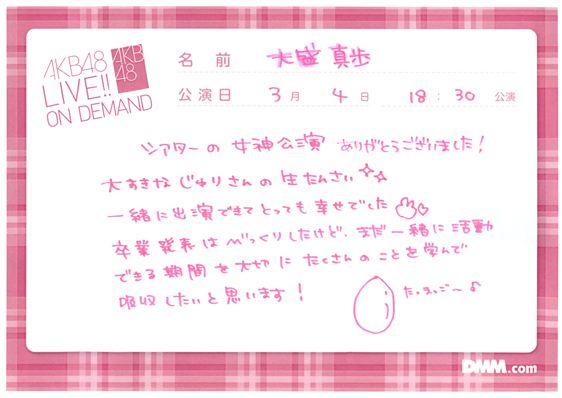 AKB48 LIVE!! ON DEMAND
AKB48
名前 大盛真歩
公演日 3月4日 18:30 公演
シアターの女神公演 ありがとうございました!
大すきなじゅりさんの生たんさい
一緒に出演できてとっても幸せでした
卒業発表はびっくりしたけど、まだ一緒に活動
できる期間を大切にたくさんのことを学んで
吸収したいと思います!
たまご〜♪
DMM.com